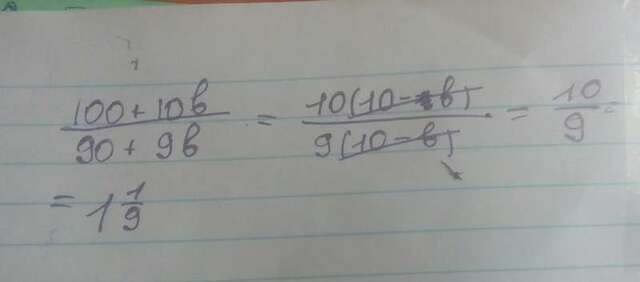 100+10в / 90+9в = 10(10-в) / 9(10-в) = 10/9 =
= 1 1/9